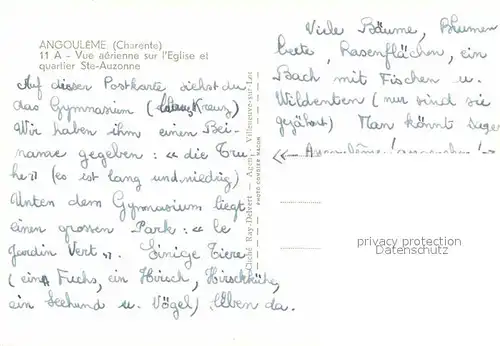 ANGOULÊME (Charente)
11 A - Vue aérienne sur l'Eglise et
quartier Ste-Auzonne
Auf dieser Postkarte siehst du
das Gymnasium ( Kreuz)
Wir haben ihm einen Bei-
name gegeben : « die Tru
he » (es ist lang und niedrig)
Unten dem Gymnasium liegt
einen grossen Park : « le
Jardin Vert ». Einige Tiere
(ein Fuchs, ein Hirsch, Hirschkühe,
ein Seehund u. Vögel) leben da.
Cliché Ray-Delvert - Agen Villeneuve-sur-Lot
PHOTO COMBIER MACON
Viele Bäume, Blumen
beete, Rasenflächen, ein
Bach mit Fischen u.
Wildenten (nur sind sie
gezähmt) Man könnt sagen
privacy protection
Datenschutz